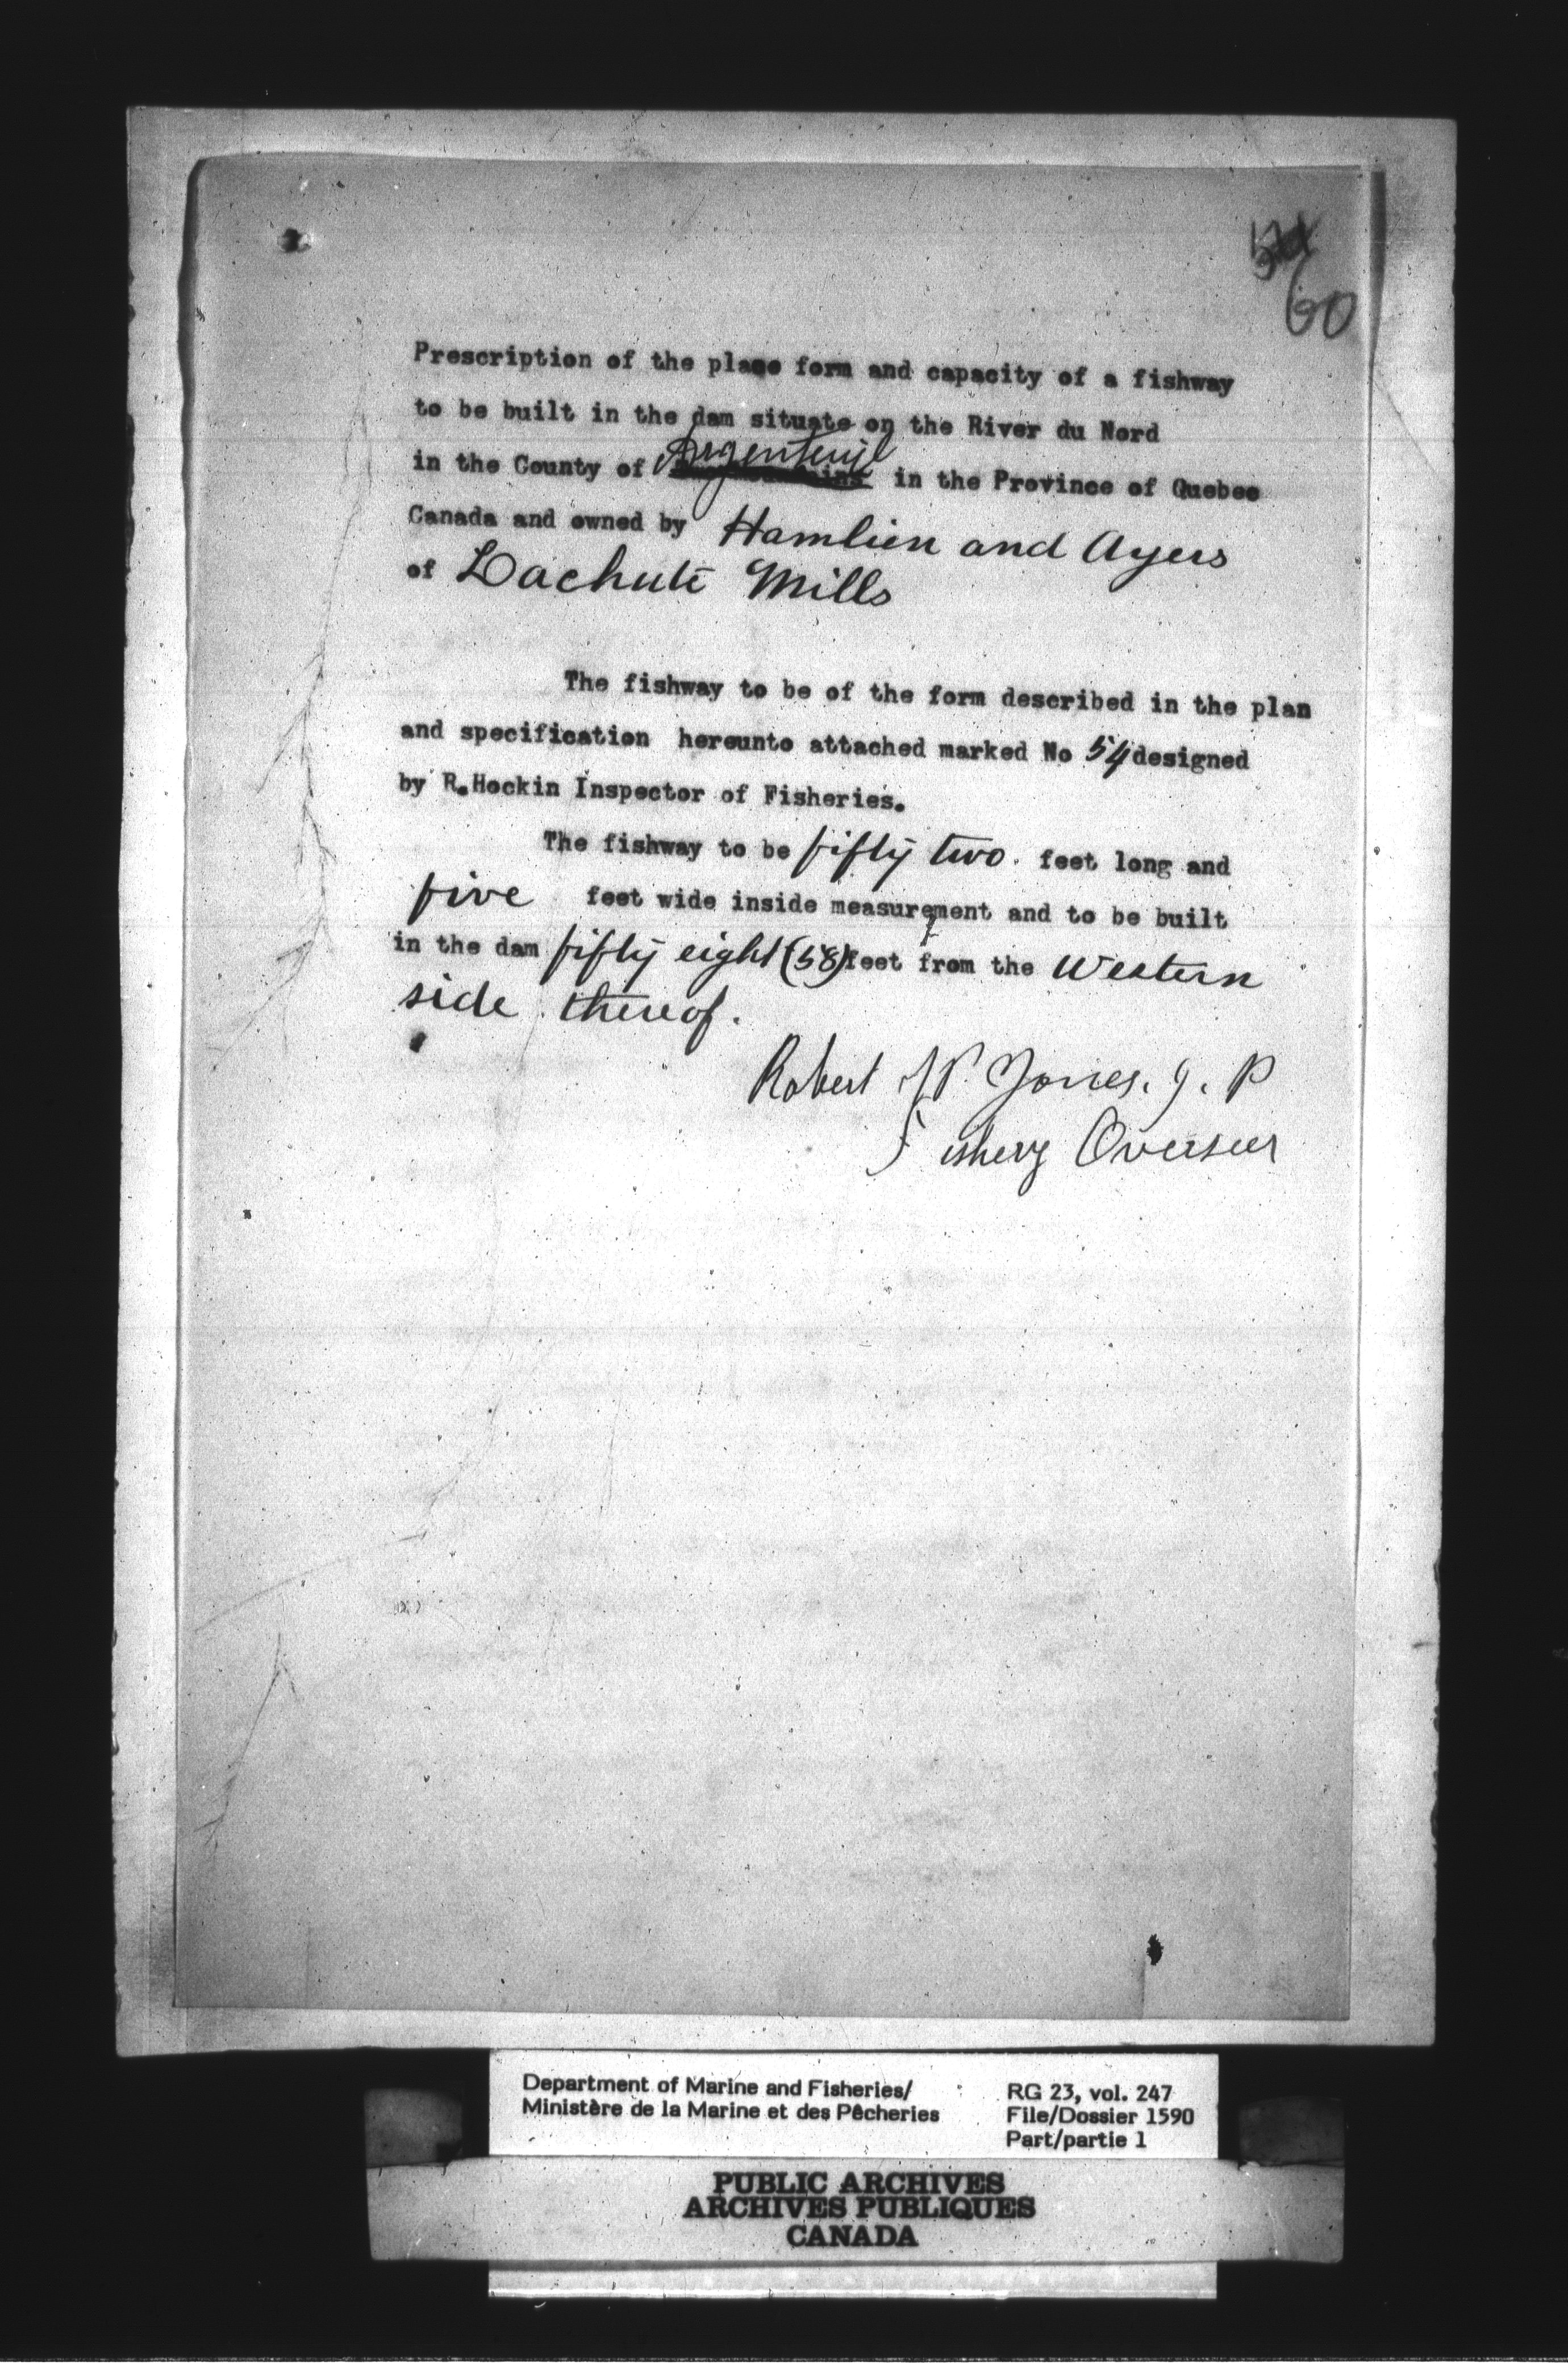 60
Prescription of the place form and capacity of a fishway
to be built in the dam situate on the River du Nord
in the County of Argenteuil in the Province of Quebec
Canada and owned by Hamlien and Ayers
of Lachute Mills
The fishway to be of the form described in the plan
and specification hereunto attached marked No 54 designed
by R.Hockin Inspector of Fisheries.
The fishway to be fifty two feet long and
five feet wide inside measurement and to be built
in the dam fifty eight (58) feet from the Western
side thereof.
Robert W. Jones. J. P
Fishery Overseer
Department of Marine and Fisheries/
Ministère de la Marine et des Pêcheries
RG 23, vol. 247
File/Dossier 1590
Part/partie 1
PUBLIC ARCHIVES
ARCHIVES PUBLIQUES
CANADA